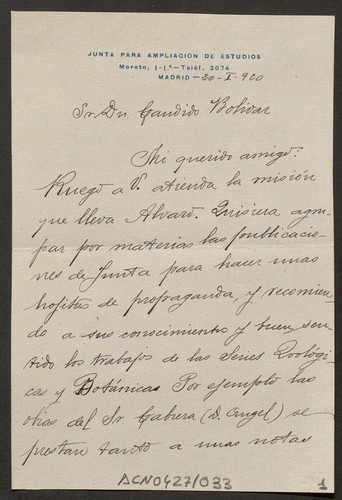 JUNTA PARA AMPLIACIÓN DE ESTUDIOS
Moreto, 1-1.º—Teléf. 3074
MADRID — 20-I-920
Sr. Dn. Candido Bolivar
Mi querido amigo:
Ruego a V. atienda la misión
que lleva Alvaro. Quisiera agru-
par por materias las publicacio-
nes de Junta para hacer unas
hojitas de propaganda, y recomien-
do a sus conocimientos y buen sen-
tido los trabajos de las Series Zoológi-
cas y Botánicas. Por ejemplo las
obras del Sr. Cabrera (D. Angel) se
prestan tanto a unas notas
ACN0427/033
1